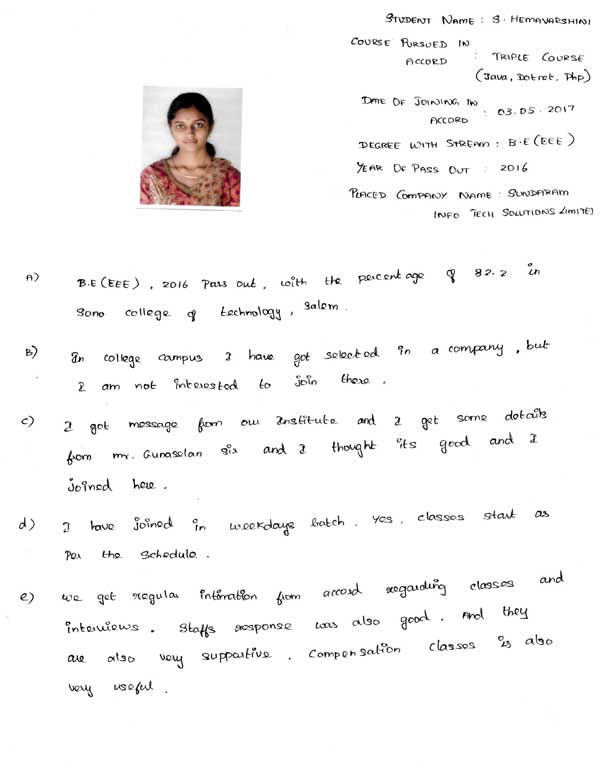 STUDENT NAME : S. HEMAVARSHINI
COURSE PURSUED IN
ACCORD : TRIPLE COURSE
(Java, Dotnet, Php)
DATE OF JOINING IN
ACCORD : 03.05.2017
DEGREE WITH STREAM : B.E (EEE)
YEAR OF PASS OUT : 2016
PLACED COMPANY NAME : SUNDARAM
INFO TECH SOLUTIONS LIMITED
A) B.E (EEE), 2016 Pass out, with the percentage of 82.2 in
Sona college of technology, Salem.
B) In college campus I have got selected in a company, but
I am not interested to join there.
c) I got message from our Institute and I get some details
from mr. Gunaselan sir and I thought its good and I
joined here.
d) I have joined in weekdays batch. Yes, classes start as
Per the schedule.
e) we get regular intimation from accord regarding classes and
interviews. Staffs response was also good. And they
are also very supportive. Compensation classes is also
very useful.